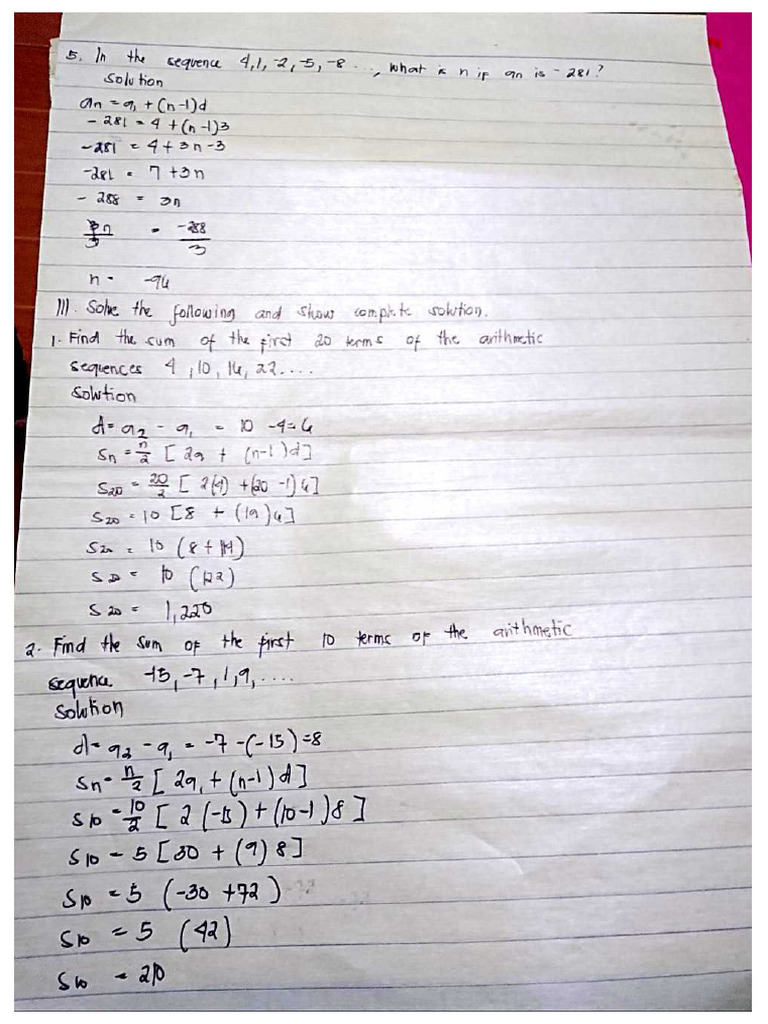 5. In the sequence 4,1,-2,-5,-8 ..., what is n if an is -281?
Solution
an = a1 + (n-1)d
-281 = 4 + (n-1)3
-281 = 4 + 3n -3
-281 = 7 + 3n
-288 = 3n
3n/3 = -288/3
n = -96
III. Solve the following and show complete solution.
1. Find the sum of the first 20 terms of the arithmetic
sequences 4, 10, 16, 22....
Solution
d= a2 - a1 = 10 -4=6
Sn = n/2 [2a + (n-1)d]
S20 = 20/2 [2(4) + (20 -1)6]
S20 = 10 [8 + (19)6]
S20 = 10 (8 + 114)
S20 = 10 (122)
S20 = 1,220
2. Find the sum of the first 10 terms of the arithmetic
sequence -15, -7, 1, 9, ....
Solution
d= a2 - a1 = -7 -(-15) =8
Sn = n/2 [2a1 + (n-1)d]
S10 = 10/2 [2(-15) + (10-1)8]
S10 = 5 [30 + (9)8]
S10 = 5 (-30 +72)
S10 = 5 (42)
S10 = 210